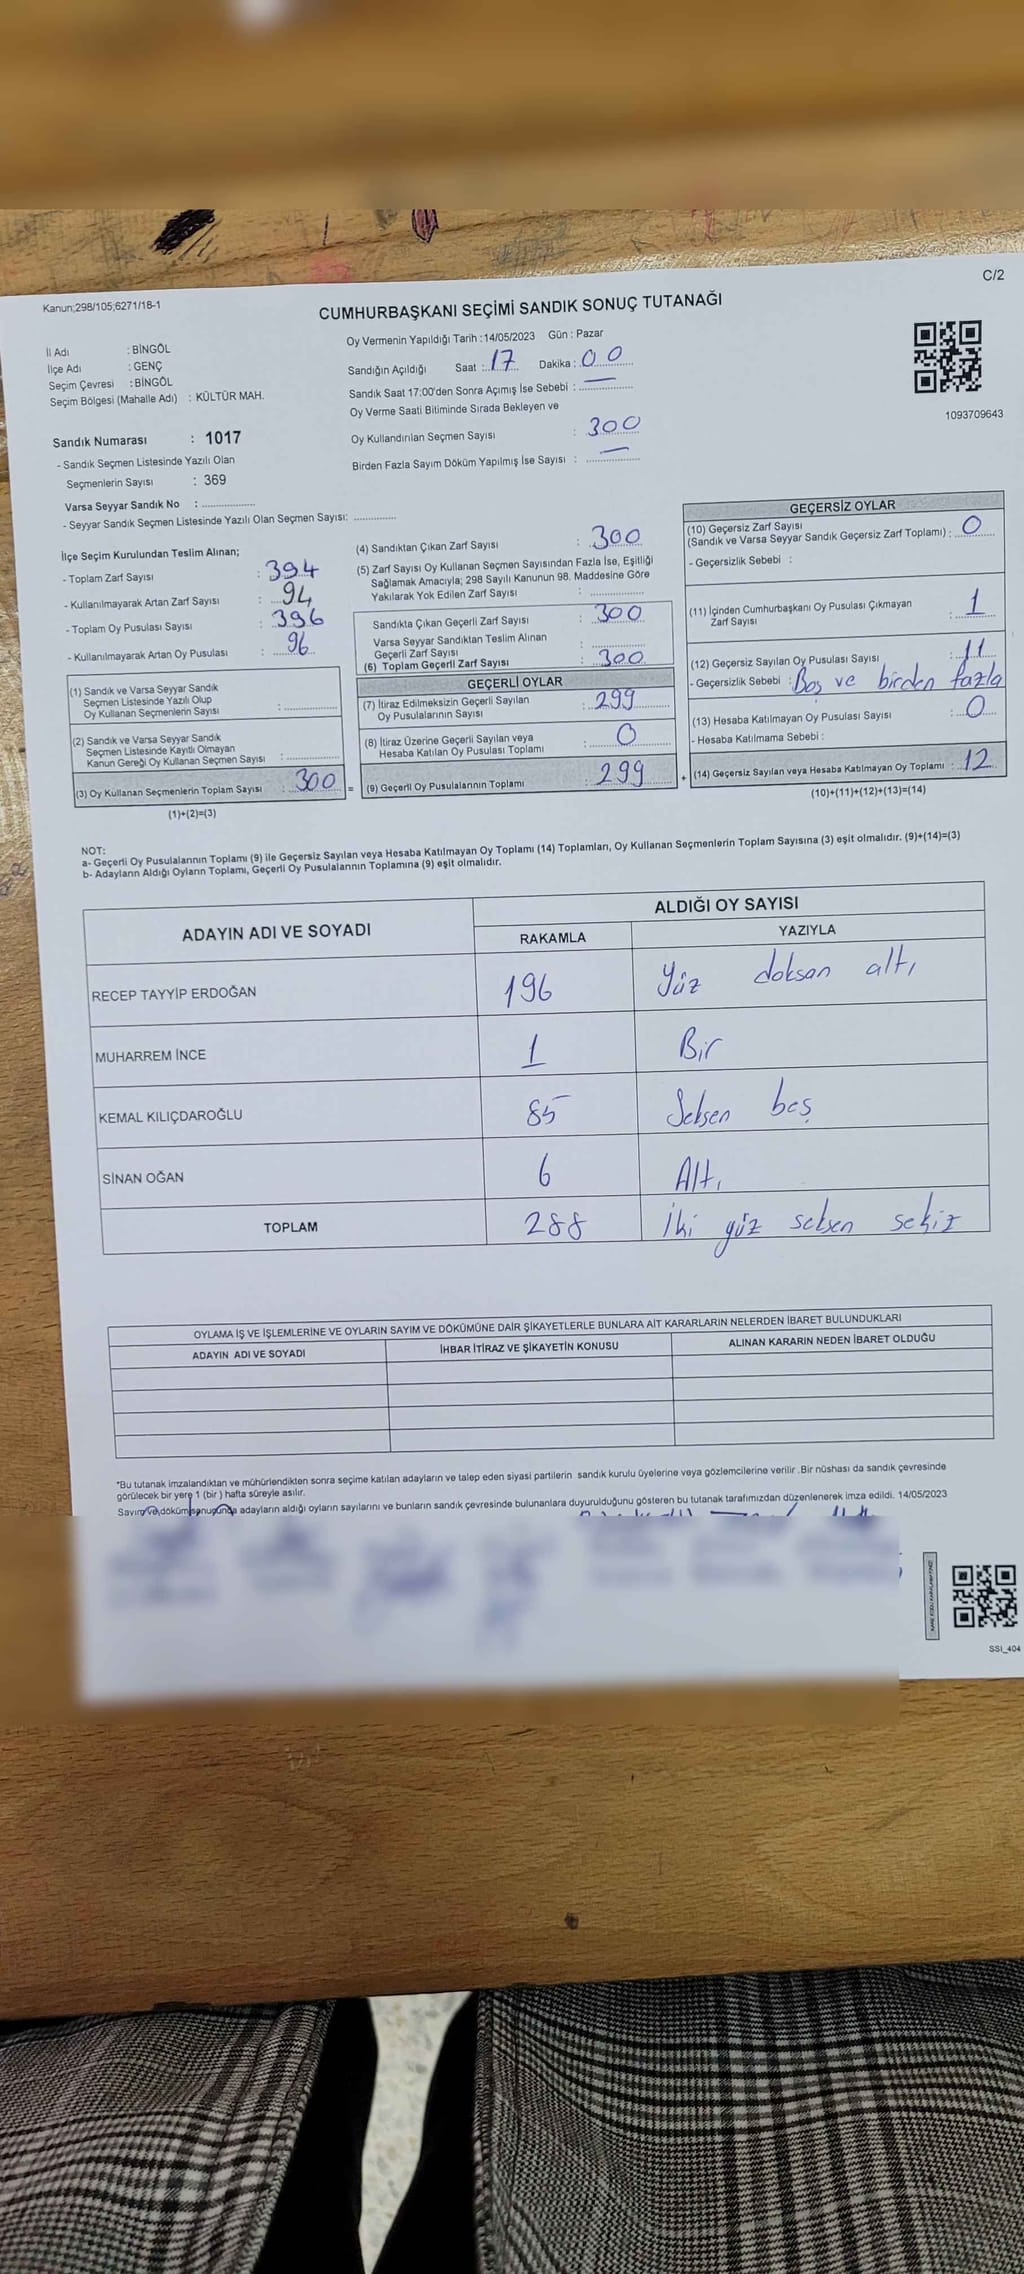 Kanun;298/105;6271/18-1
C/2
CUMHURBAŞKANI SEÇİMİ SANDIK SONUÇ TUTANAĞI
İl Adı : BİNGÖL
İlçe Adı : GENÇ
Seçim Çevresi : BİNGÖL
Seçim Bölgesi (Mahalle Adı) : KÜLTÜR MAH.
Sandık Numarası : 1017
- Sandık Seçmen Listesinde Yazılı Olan
Seçmenlerin Sayısı : 369
Varsa Seyyar Sandık No : ................
- Seyyar Sandık Seçmen Listesinde Yazılı Olan Seçmen Sayısı: ............
Oy Vermenin Yapıldığı Tarih :14/05/2023 Gün : Pazar
Sandığın Açıldığı Saat : 17 Dakika : 00
Sandık Saat 17:00'den Sonra Açımış İse Sebebi : —
Oy Verme Saati Bitiminde Sırada Bekleyen ve
Oy Kullandırılan Seçmen Sayısı : 300
Birden Fazla Sayım Döküm Yapılmış İse Sayısı : —
1093709643
İlçe Seçim Kurulundan Teslim Alınan;
- Toplam Zarf Sayısı : 394
- Kullanılmayarak Artan Zarf Sayısı : 94
- Toplam Oy Pusulası Sayısı : 396
- Kullanılmayarak Artan Oy Pusulası : 96
(1) Sandık ve Varsa Seyyar Sandık
Seçmen Listesinde Yazılı Olup
Oy Kullanan Seçmenlerin Sayısı : ................
(2) Sandık ve Varsa Seyyar Sandık
Seçmen Listesinde Kayıtlı Olmayan
Kanun Gereği Oy Kullanan Seçmen Sayısı : ................
(3) Oy Kullanan Seçmenlerin Toplam Sayısı : 300 =
(1)+(2)=(3)
(4) Sandıktan Çıkan Zarf Sayısı : 300
(5) Zarf Sayısı Oy Kullanan Seçmen Sayısından Fazla İse, Eşitliği
Sağlamak Amacıyla; 298 Sayılı Kanunun 98. Maddesine Göre
Yakılarak Yok Edilen Zarf Sayısı : ................
Sandıkta Çıkan Geçerli Zarf Sayısı : 300
Varsa Seyyar Sandıktan Teslim Alınan
Geçerli Zarf Sayısı : ................
(6) Toplam Geçerli Zarf Sayısı : 300
GEÇERLİ OYLAR
(7) İtiraz Edilmeksizin Geçerli Sayılan
Oy Pusulalarının Sayısı : 299
(8) İtiraz Üzerine Geçerli Sayılan veya
Hesaba Katılan Oy Pusulası Toplamı : 0
(9) Geçerli Oy Pusulalarının Toplamı : 299 +
GEÇERSİZ OYLAR
(10) Geçersiz Zarf Sayısı
(Sandık ve Varsa Seyyar Sandık Geçersiz Zarf Toplamı) : 0
- Geçersizlik Sebebi :
(11) İçinden Cumhurbaşkanı Oy Pusulası Çıkmayan
Zarf Sayısı : 1
(12) Geçersiz Sayılan Oy Pusulası Sayısı : 11
- Geçersizlik Sebebi : Boş ve birden fazla
(13) Hesaba Katılmayan Oy Pusulası Sayısı : 0
- Hesaba Katılmama Sebebi :
(14) Geçersiz Sayılan veya Hesaba Katılmayan Oy Toplamı : 12
(10)+(11)+(12)+(13)=(14)
NOT:
a- Geçerli Oy Pusulalarının Toplamı (9) ile Geçersiz Sayılan veya Hesaba Katılmayan Oy Toplamı (14) Toplamları, Oy Kullanan Seçmenlerin Toplam Sayısına (3) eşit olmalıdır. (9)+(14)=(3)
b- Adayların Aldığı Oyların Toplamı, Geçerli Oy Pusulalarının Toplamına (9) eşit olmalıdır.
ADAYIN ADI VE SOYADI ALDIĞI OY SAYISI
RAKAMLA YAZIYLA
RECEP TAYYİP ERDOĞAN 196 Yüz doksan altı
MUHARREM İNCE 1 Bir
KEMAL KILIÇDAROĞLU 85 Seksen beş
SİNAN OĞAN 6 Altı
TOPLAM 288 İki yüz seksen sekiz
OYLAMA İŞ VE İŞLEMLERİNE VE OYLARIN SAYIM VE DÖKÜMÜNE DAİR ŞİKAYETLERLE BUNLARA AİT KARARLARIN NELERDEN İBARET BULUNDUKLARI
ADAYIN ADI VE SOYADI İHBAR İTİRAZ VE ŞİKAYETİN KONUSU ALINAN KARARIN NEDEN İBARET OLDUĞU
"Bu tutanak imzalandıktan ve mühürlendikten sonra seçime katılan adayların ve talep eden siyasi partilerin sandık kurulu üyelerine veya gözlemcilerine verilir .Bir nüshası da sandık çevresinde
görülecek bir yere 1 (bir ) hafta süreyle asılır.
Sayım ve döküm sonucunda adayların aldığı oyların sayılarını ve bunların sandık çevresinde bulunanlara duyurulduğunu gösteren bu tutanak tarafımızdan düzenlenerek imza edildi. 14/05/2023
SSI_404